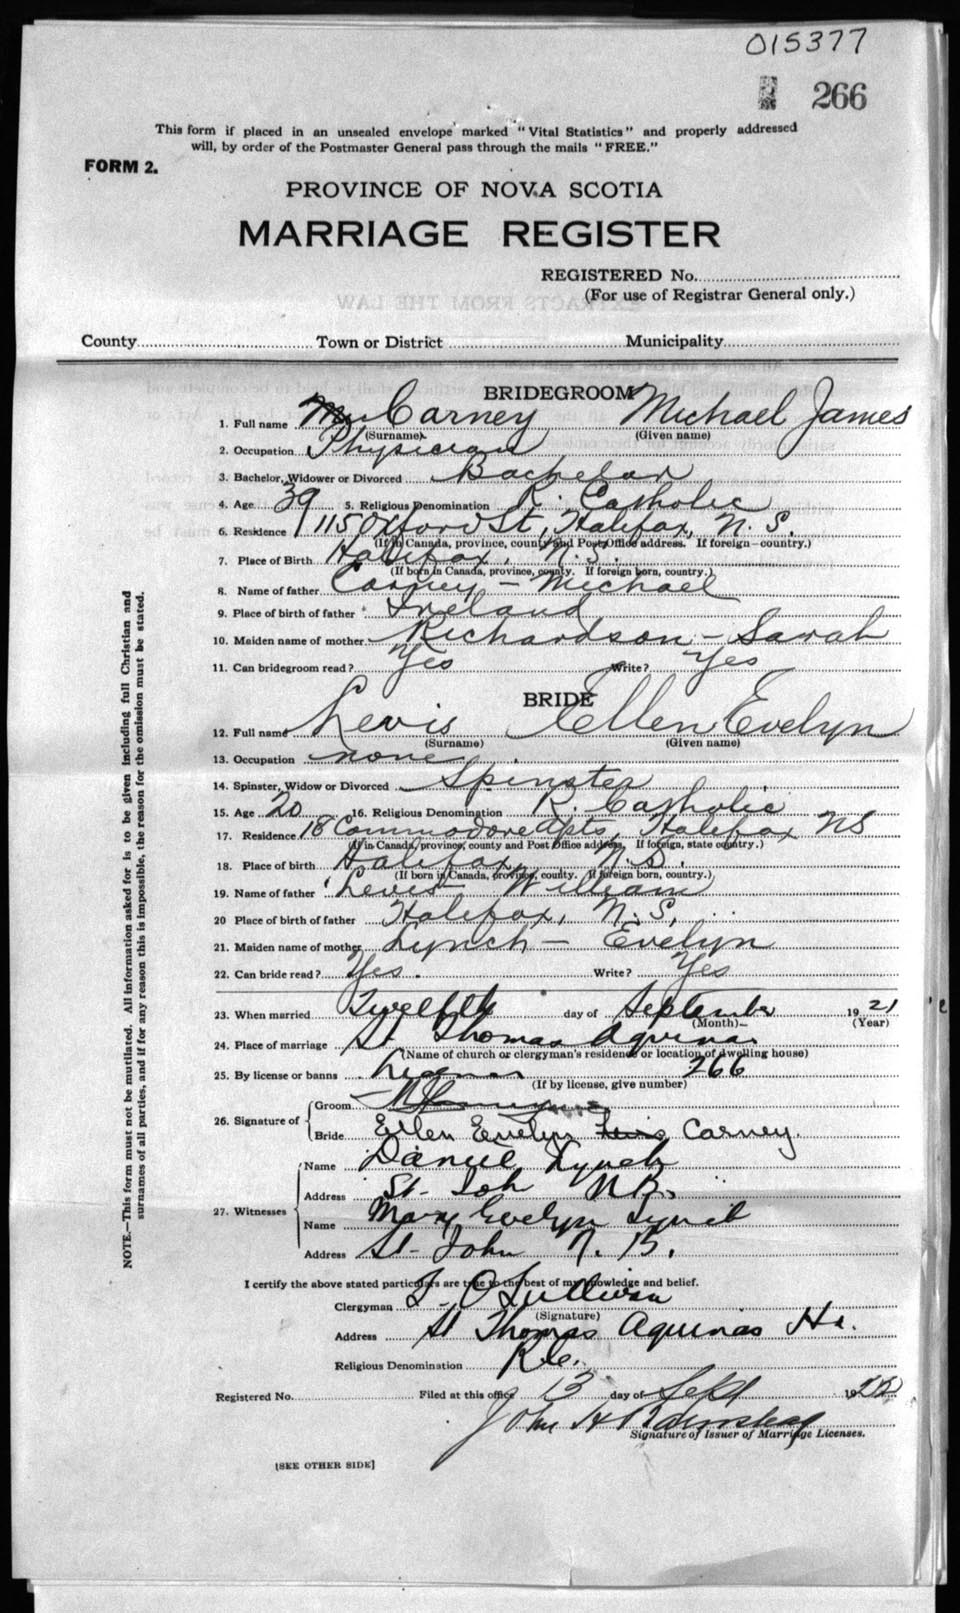 015377
266
This form if placed in an unsealed envelope marked "Vital Statistics" and properly addressed
will, by order of the Postmaster General pass through the mails "FREE."
FORM 2.
PROVINCE OF NOVA SCOTIA
MARRIAGE REGISTER
REGISTERED No.
(For use of Registrar General only.)
EXTRACTS FROM THE LAW
County Town or District Municipality
BRIDEGROOM
1. Full name Carney Michael James
(Surname) (Given name)
2. Occupation Physician
3. Bachelor, Widower or Divorced Bachelor
4. Age 39 5. Religious Denomination R. Catholic
6. Residence 115 Oxford St, Halifax, N.S.
(If in Canada, province, county and Post Office address. If foreign—country.)
7. Place of Birth Halifax, N.S.
(If born in Canada, province, county. If foreign born, country.)
8. Name of father Carney - Michael
9. Place of birth of father Ireland
10. Maiden name of mother Richardson - Sarah
11. Can bridegroom read? Yes Write? Yes
BRIDE
12. Full name Levis Ellen Evelyn
(Surname) (Given name)
13. Occupation none
14. Spinster, Widow or Divorced Spinster
15. Age 20 16. Religious Denomination R. Catholic
17. Residence 18 Commodore Apts, Halifax NS
(If in Canada, province, county and Post Office address, If foreign, state country.)
18. Place of birth Halifax, N.S.
(If born in Canada, province, county. If foreign born, country.)
19. Name of father Levis William
20 Place of birth of father Halifax, N.S.
21. Maiden name of mother Lynch - Evelyn
22. Can bride read? Yes. Write? Yes
23. When married Twelfth day of September 1921
(Month) (Year)
24. Place of marriage St Thomas Aquinas
(Name of church or clergyman's residence or location of dwelling house)
25. By license or banns License 266
(If by license, give number)
26. Signature of Groom
Bride Ellen Evelyn Levis Carney.
27. Witnesses Name Daniel Lynch
Address St- Joh N.B.
Name Mary Evelyn Lynch
Address St- John N. B.
I certify the above stated particulars are true to the best of my knowledge and belief.
Clergyman O'Sullivan
(Signature)
Address St Thomas Aquinas Hx.
Religious Denomination R.C.
Registered No. Filed at this office 13 day of Sept 19
John H
Signature of Issuer of Marriage Licenses.
[SEE OTHER SIDE]
NOTE.—This form must not be mutilated. All information asked for is to be given including full Christian and
surnames of all parties, and if for any reason this is impossible, the reason for the omission must be stated.